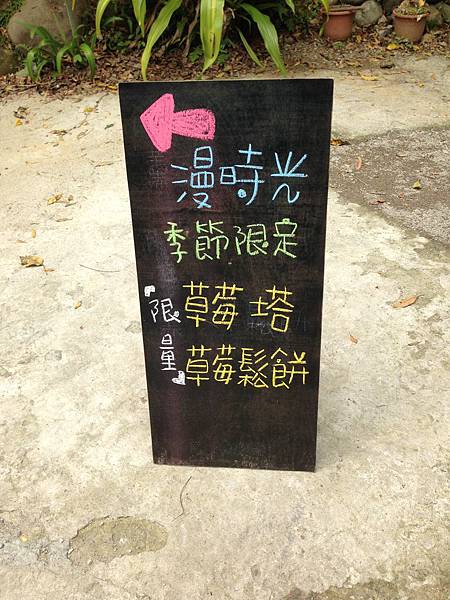 漫時光
季節限定
『限量』
草莓塔
草莓鬆餅